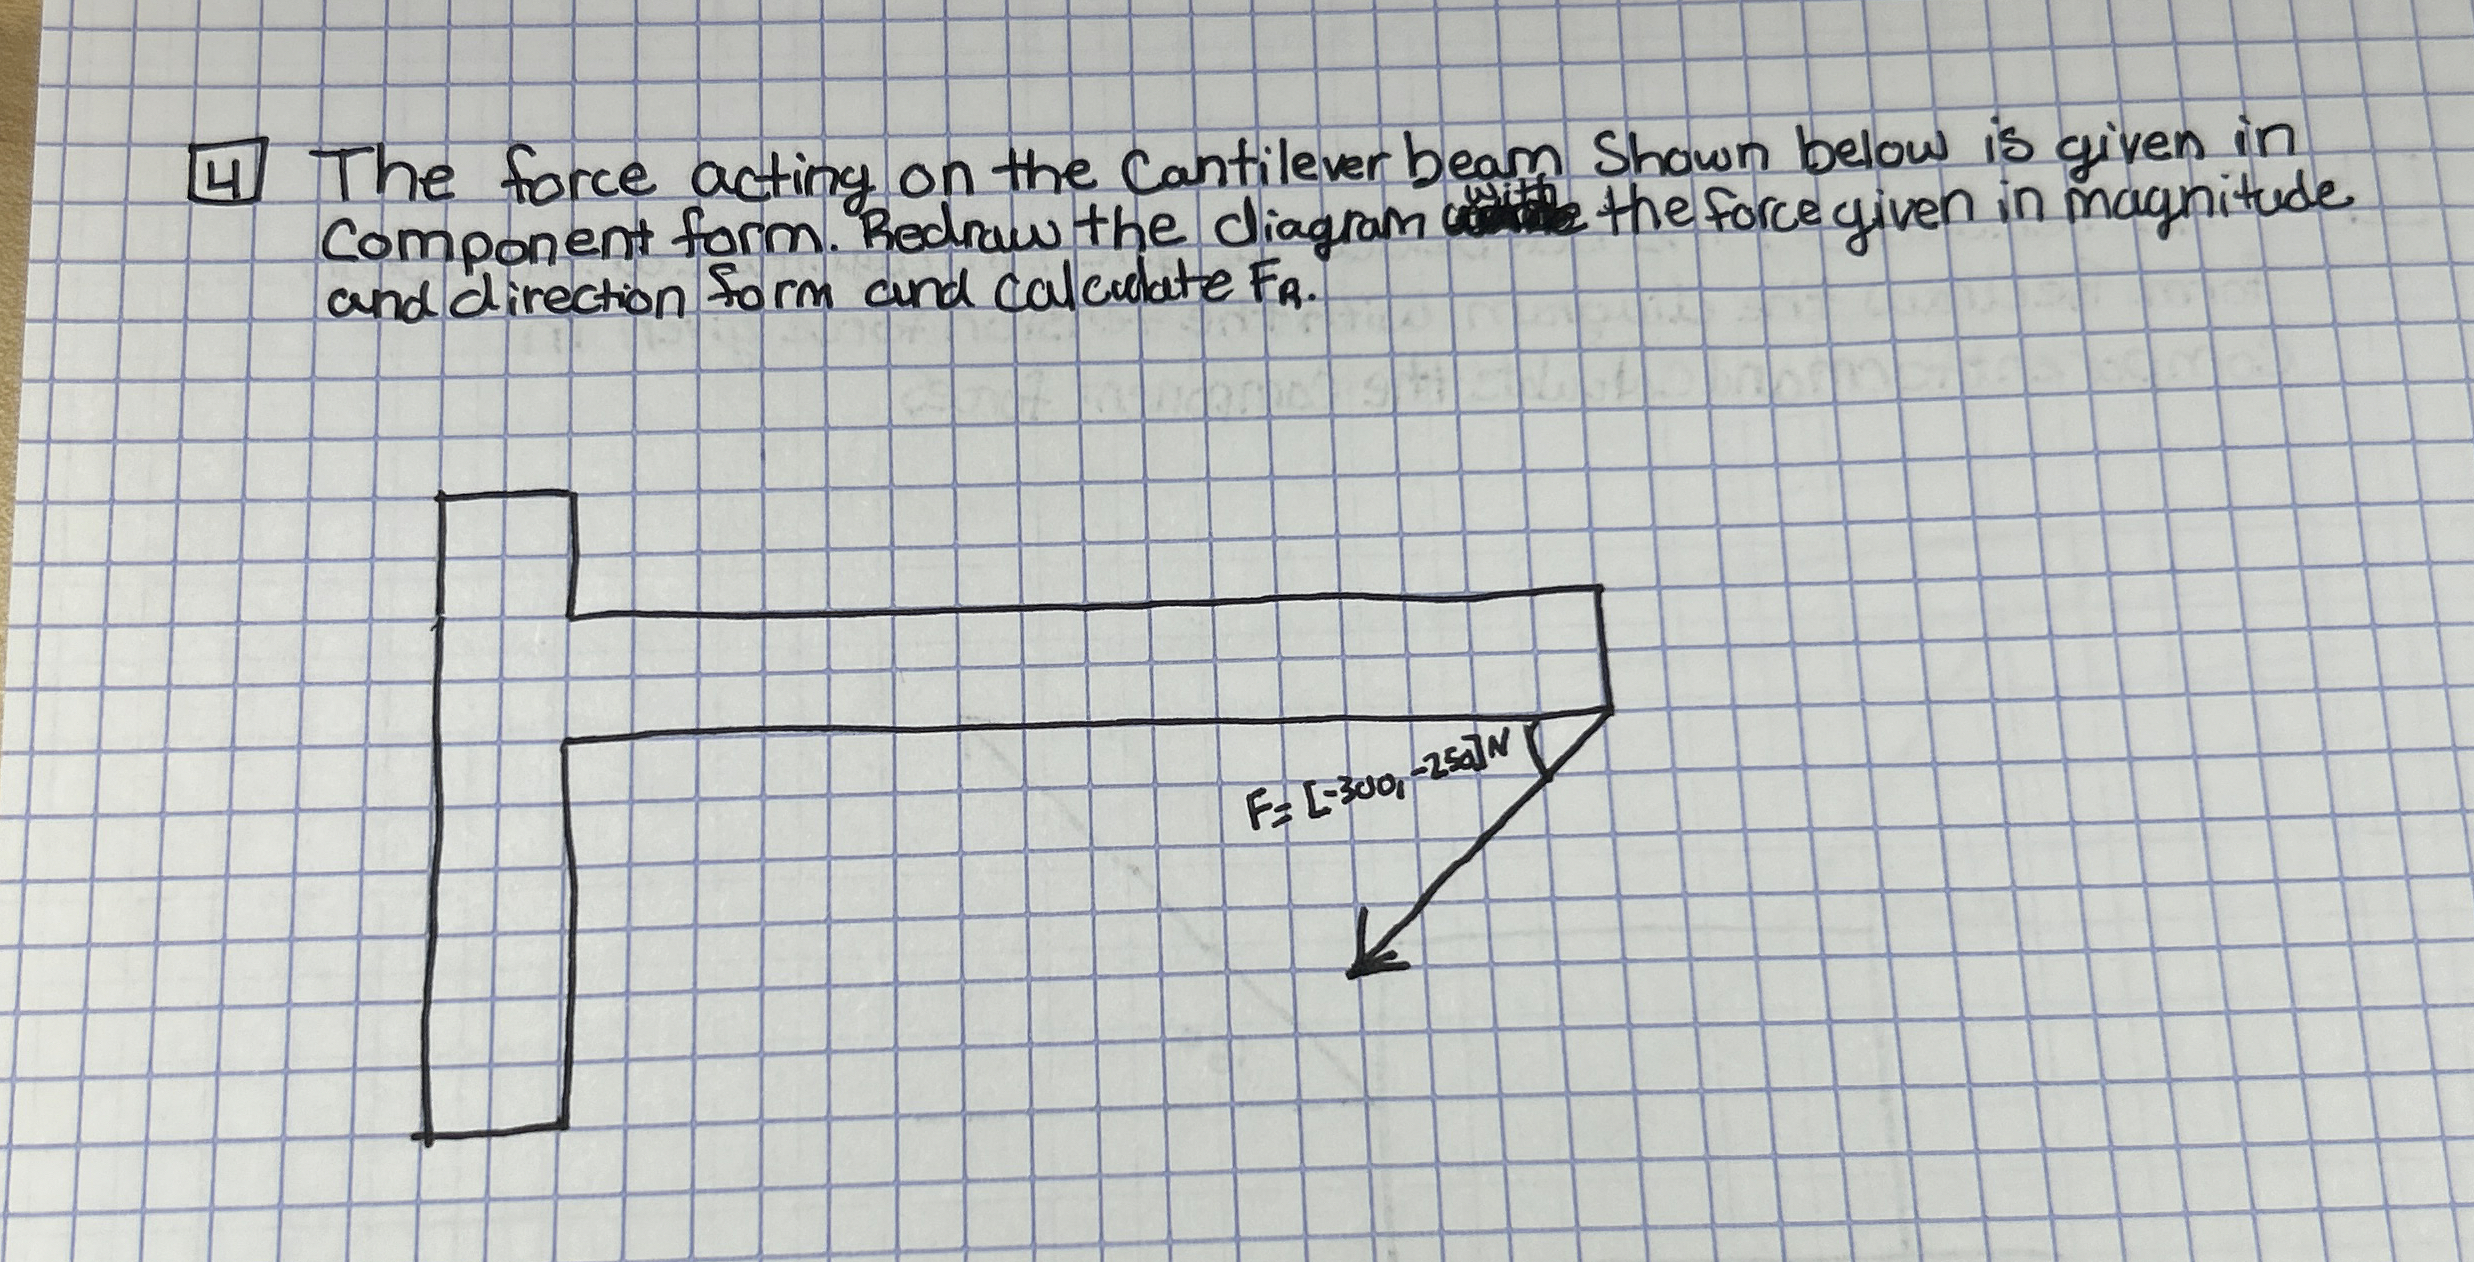 4 The force acting on the Cantilever beam Shown below is given in
Component form. Redraw the diagram with the force given in magnitude
and direction form and calculate FR.
F= [-300, -250]N